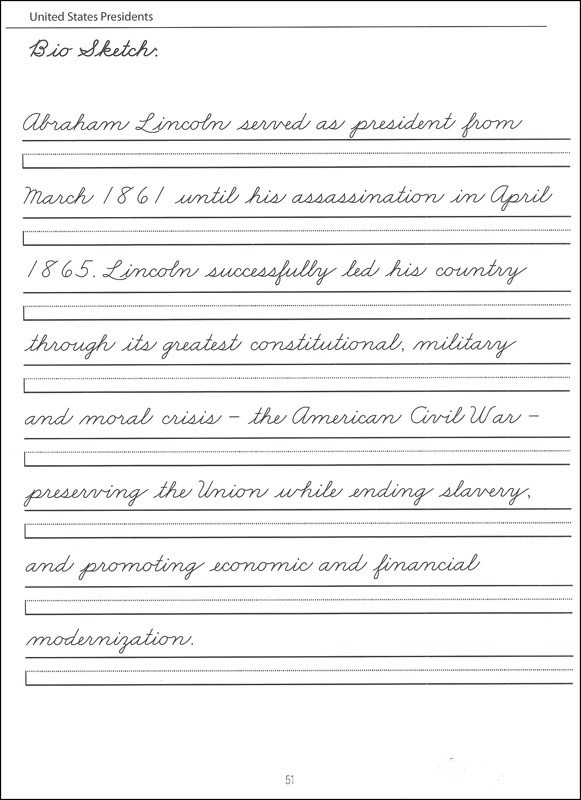 United States Presidents
Bio Sketch:
Abraham Lincoln served as president from
March 1861 until his assassination in April
1865. Lincoln successfully led his country
through its greatest constitutional, military
and moral crisis – the American Civil War –
preserving the Union while ending slavery,
and promoting economic and financial
modernization.
51